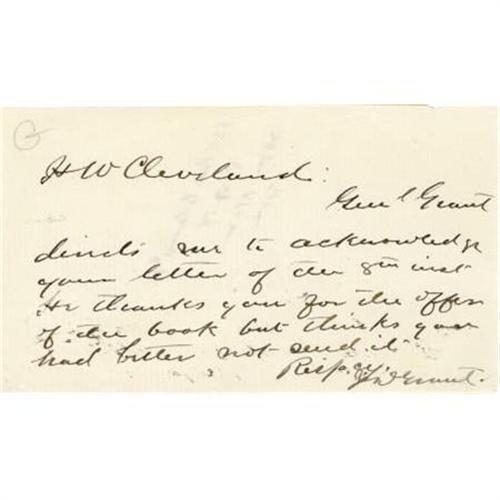 G
H W Cleveland:
Genl Grant
directs me to acknowledge
your letter of the 8th inst
He thanks you for the offer
of the book but thinks you
had better not send it
Respcy.
Grant.